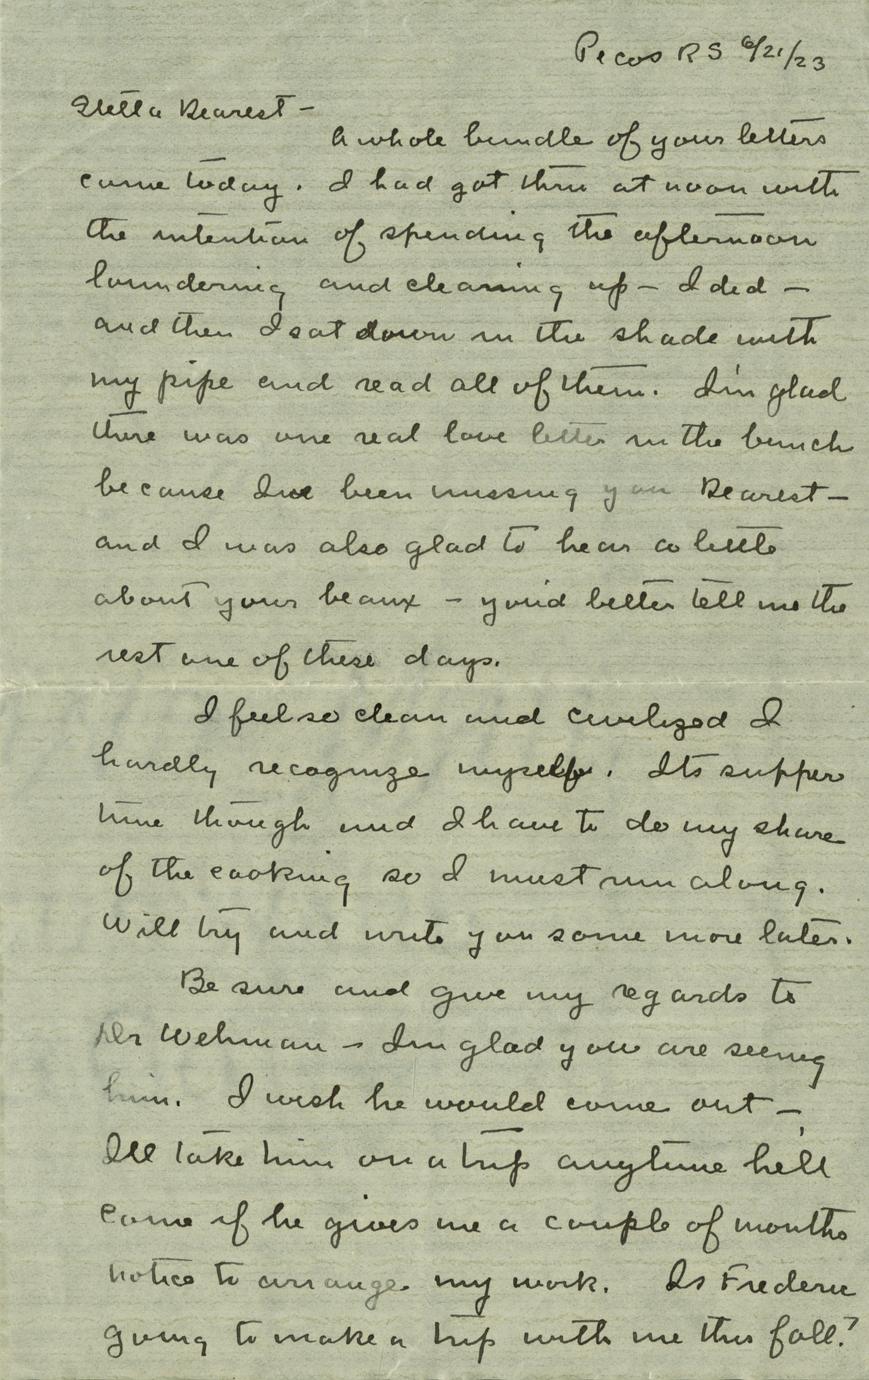 Pecos R S 6/21/23
Stella Dearest –
A whole bundle of your letters
came today. I had got thru at noon with
the intention of spending the afternoon
laundering and cleaning up – I did –
and then I sat down in the shade with
my pipe and read all of them. I'm glad
there was one real love letter in the bunch
because Ive been missing you Dearest –
and I was also glad to hear a little
about your beaux – you'd better tell me the
rest one of these days.
I feel so clean and civilized I
hardly recognize myself. Its supper
time though and I have to do my share
of the cooking so I must run along.
Will try and write you some more later.
Be sure and give my regards to
Dr Wehman – Im glad you are seeing
him. I wish he would come out –
Ill take him on a trip anytime he'll
come if he gives me a couple of months
notice to arrange my work. Is Frederic
going to make a trip with me this fall?